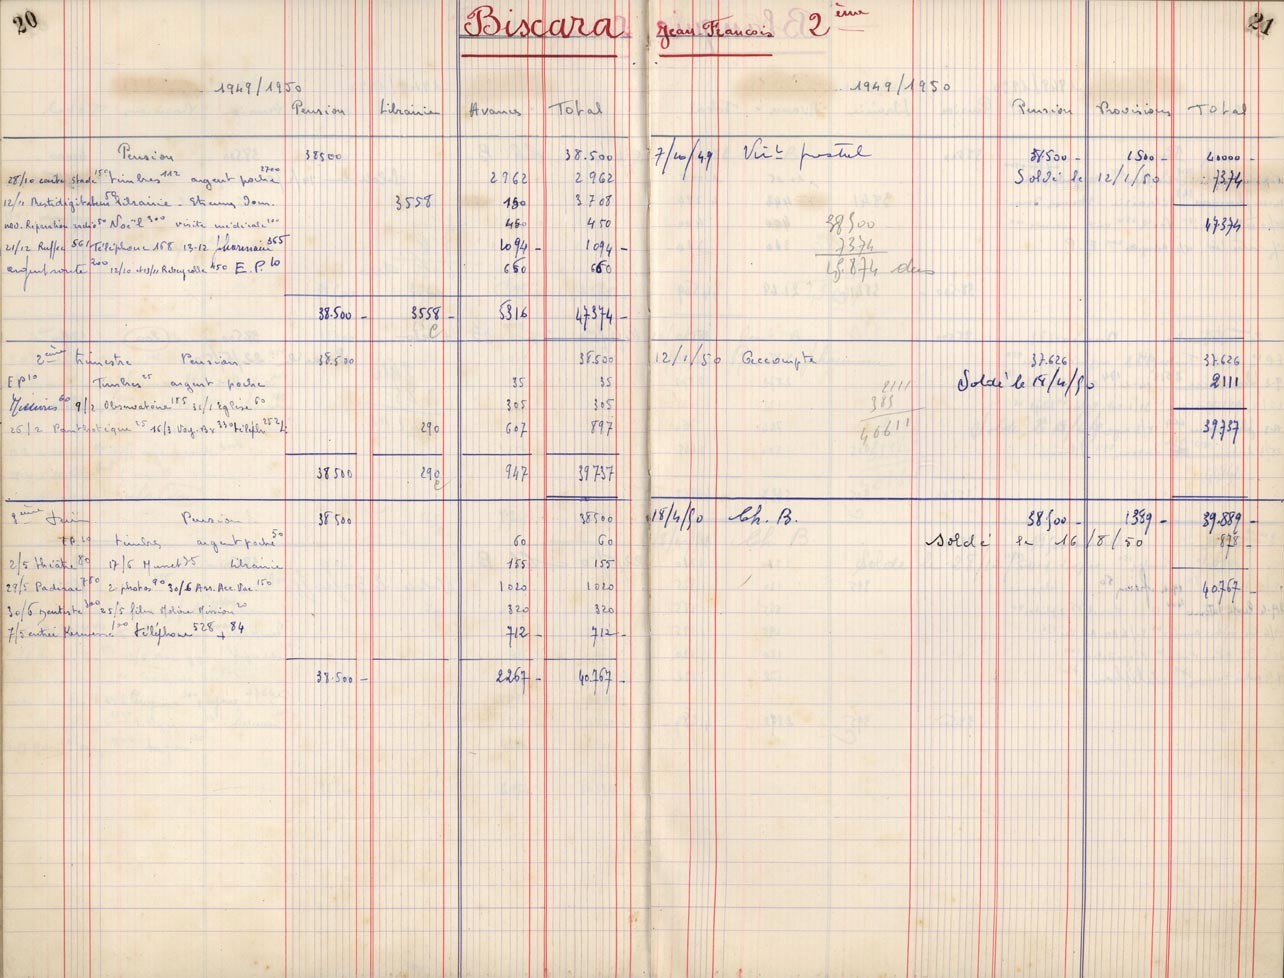 20
Biscara Jean-François 2ème
21
1949/1950
Pension Librairie Avances Total
Pension 38500 38.500
28/10 carte stade 150 timbres 112 argent poche 2700 2962 2962
12/11 Prestidigitateur 50 Librairie - Etrennes Dom. 3558 150 3708
nov. Réparation radio 50 Noël 300 visite médicale 100 450 450
21/12 Ruffec 561 Téléphone 168 13-12 pharmacie 365 1094 - 1094 -
argent route 200 12/10 450 E.P. 10 660 660
38.500 - 3558 - 5316 47374 -
2ème trimestre Pension 38.500 38.500
EP 10 Timbres 25 argent poche 35 35
Missions 60 9/2 Observatoire 185 31/1 Eglise 60 305 305
26/2 25 16/3 Voy. Bx 330 téléph 252 290 607 897
38500 290 947 39737
3ème Juin Pension 38500 38500
EP 10 timbres argent poche 50 60 60
2/5 théâtre 80 17/5 75 Librairie 155 155
29/5 Padirac 750 2 photos 90 30/6 Ass. Acc. Vac. 150 1020 1020
30/6 dentiste 300 25/5 film Mission 20 320 320
7/5 entrée Kermesse 100 téléphone 528 + 84 712 - 712 -
38.500 - 2267 - 40.767 -
1949/1950
Pension Provisions Total
7/10/49 Virt postal 38500 - 1500 - 40000 -
Soldé le 12/1/50 7374
47374
38500
7374
45.874 dus
12/1/50 Accompte 37.626 37.626
Soldé le 18/4/50 2111
2111
385
40611
39737
18/4/50 Ch. B. 38500 - 1389 - 39.889 -
Soldé le 16/8/50 878 -
40767 -